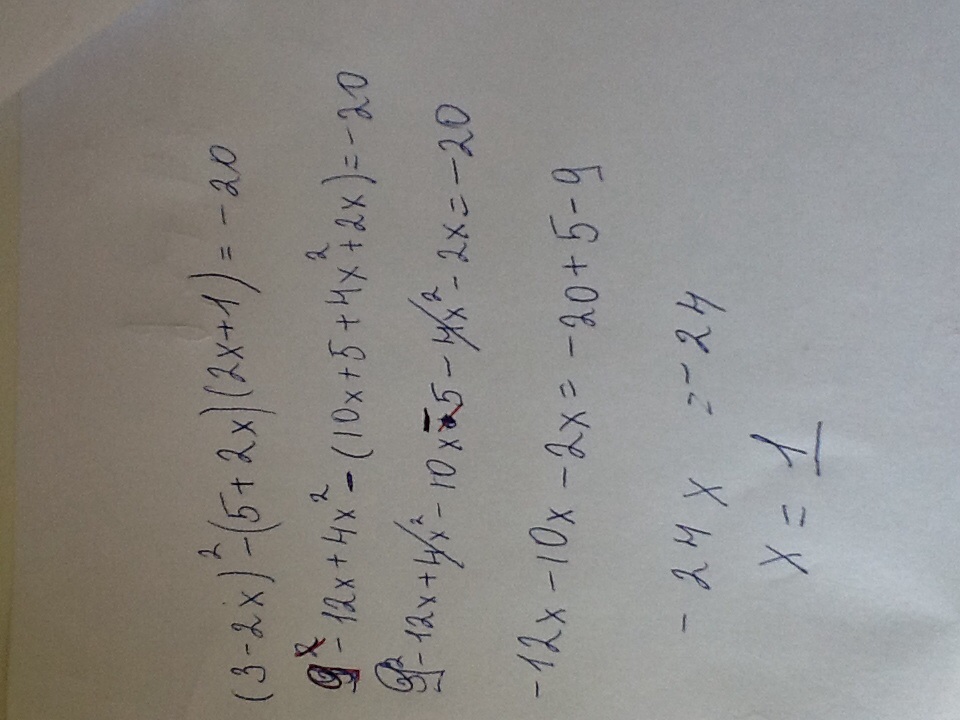 (3-2x)²-(5+2x)(2x+1)=-20
9-12x+4x²-(10x+5+4x²+2x)=-20
9-12x+4x²-10x-5-4x²-2x=-20
-12x-10x-2x=-20+5-9
-24x=-24
x=1